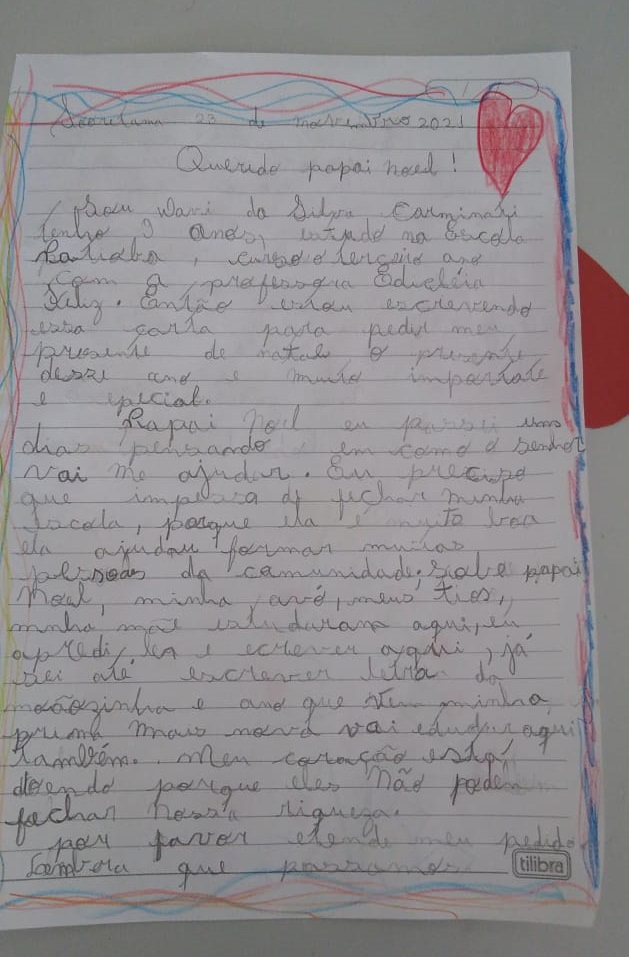 Sooretama 23 de novembro 2021
Querido papai noel!
Sou Davi da Silva Carminati
tenho 9 anos, estudo na Escola
Patioba, curso o terceiro ano
com a professora Edicléia
Então estou escrevendo
essa carta para pedir meu
presente de natal, o presente
desse ano e muito importate
e epecial.
Papai Noel eu passei uns
dias pensando em como o senhor
vai me ajudar. Eu preciso
que impessa de fechar minha
escola, porque ela é muito boa
ela ajudou formar muitas
pessoas da comunidade. Sabe papai
Noel, minha avó, meus tios,
minha mãe estudaram aqui, eu
apredi ler e ecrever aqui, já
sei até escrever letra de
mãozinha e ano que vem minha
prima mais nova vai edudar aqui
também. Meu coração está
doendo porque eles não podem
fechar nossa riqueza.
por favor etende meu pedido
Lembra que passamos
tilibra